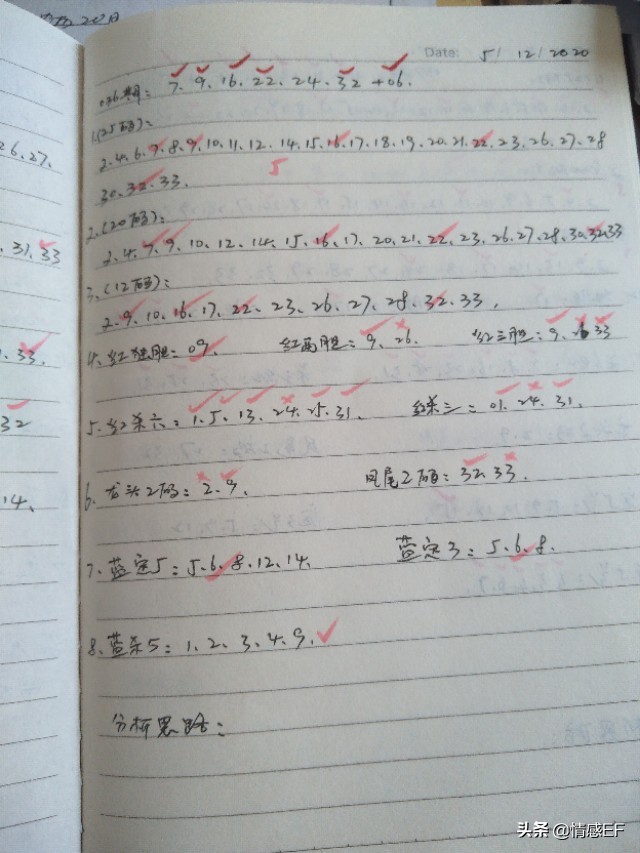 Date: 5/ 12/ 2020
036期: 7、9、16、22、24、32 +06.
1.(25码):
2.4.6.7.8.9.10.11.12.14.15.16.17.18.19.20.21.22.23.26.27.28
30.32.33.
5
2.(20码):
2.4.7.9.10.12.14.15.16.17.20.21.22.23.26.27.28.30.32.33
3.(12码):
2.9.10.16.17.22.23.26.27.28.32.33.
4.红独胆: 09. 红两胆: 9.26. 红三胆: 9. 33
5.红杀六: 1.5.13.24.25.31. 红杀三: 01.24.31.
6.龙头2码: 2.9. 凤尾2码: 32.33.
7.蓝定5: 5.6.8.12.14. 蓝定3: 5.6.8.
8.蓝杀5: 1、2、3、4、9.
分析思路:
26.27.
31.33
33.
32
14、
头条 @情感EF